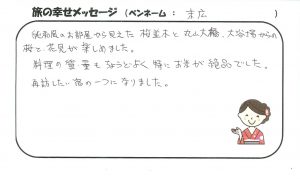 旅の幸せメッセージ（ペンネーム： 末広 ）
純和風のお部屋から見えた桜並木と丸山大橋、大谷場からの
桜で花見が楽しめました。
料理の質・量もちょうどよく特にお米が絶品でした。
再訪したい宿の一つになりました。